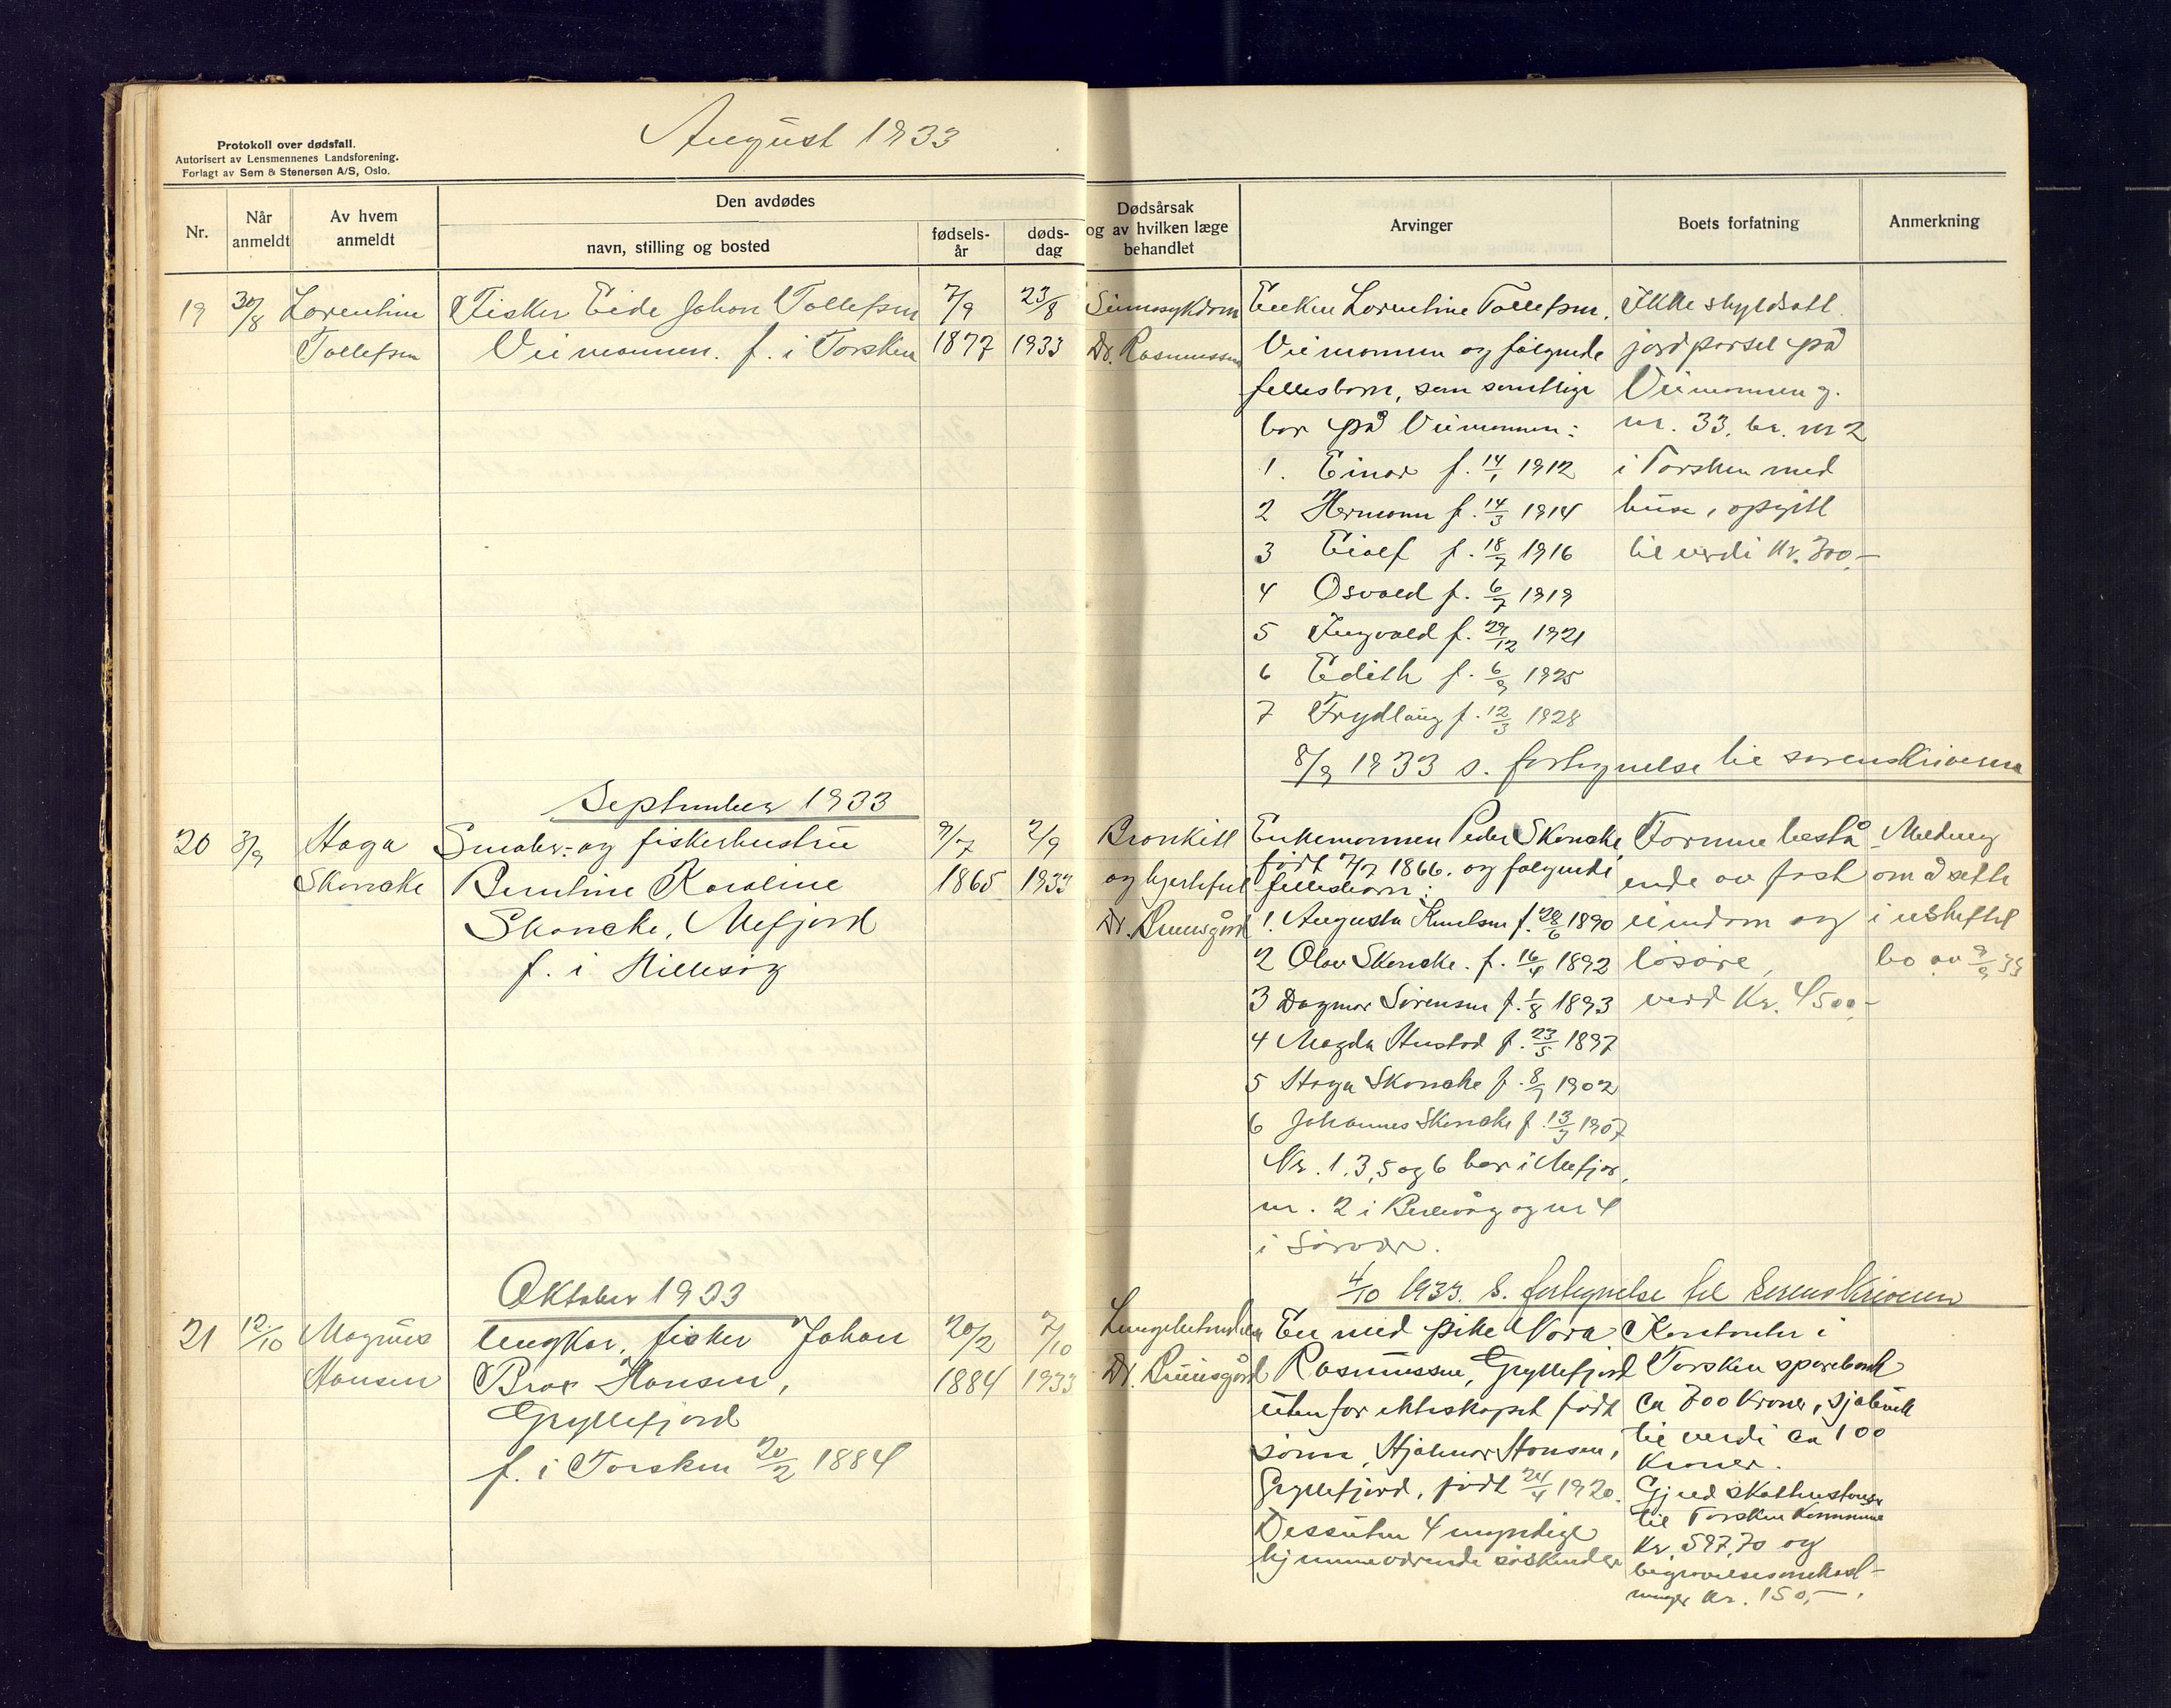 August 1933
Protokoll over dødsfall.
Autorisert av Lensmennenes Landsforening.
Forlagt av Sem & Stenersen A/S, Oslo.
Nr.
Når anmeldt
Av hvem anmeldt
Den avdødes
navn, stilling og bosted
fødselsår
dødsdag
Dødsårsak og av hvilken læge behandlet
Arvinger
Boets forfatning
Anmerkning
19 30/8 Lorentine Fisker Eide Johan Tollefsen 7/9 23/8
Tollefsen Veimannen. f. i Torsken 1877 1933
Sinnssykdom
Dr. Rasmussen
Enken Lorentine Tollefsen,
Veimannen og følgende
fellesbarn, som samtlige
bor på Veimannen:
1. Einar f. 14/1 1912
2 Hermann f. 14/3 1914
3 Eiolf f. 18/7 1916
4 Osvald f. 6/7 1919
5 Ingvald f. 29/12 1921
6 Edith f. 6/9 1925
7 Frydlaug f. 12/3 1928
Ikke skyldsatt
jordparsel på
Veimannen g.
nr. 33, br. nr 2
i Torsken med
huse, opgitt
til verdi kr. 300,-
8/9 1933 s. fortegnelse til sorenskriveren
September 1933
20 3/9 Haga Småbr.- og fiskerhustru 9/7 2/9
Skoncke Berntine Karoline 1865 1933
Skoncke, Mefjord
f. i Hillesøy
Bronkitt
og hjertefeil
Dr.
Enkemannen Peder Skoncke,
født 7/7 1866. og følgende
fellesbarn:
1. Augusta Knutsen f. 28/6 1890
2 Olav Skoncke. f. 16/4 1892
3 Dagmar Sørensen f. 1/8 1893
4 Magda Hustad f. 23/5 1897
5 Haga Skoncke f. 8/7 1902
6 Johannes Skoncke f. 13/3 1907
Nr. 1, 3, 5 og 6 bor i Mefjor,
nr. 2 i Berlevåg og nr 4
i Sørvær.
Formue bestå
ende av fast
eiendom og
løsøre,
verd Kr. 4500,-
Melding
om å sette
i uskiftet
bo av 9/9 33
4/10 1933. s. fortegnelse til sorenskriveren
Oktober 1933
21 12/10 Magnus Ungkar, fisker Johan 20/2 7/10
Hansen Brox Hansen, 1884 1933
Gryllefjord
f. i Torsken 20/2 1884
Lungebetendelse
Dr.
En med pike Nora
Rasmussen, Gryllefjord
utenfor ekteskapet født
sønn, Hjalmar Hansen,
Gryllefjord, født 24/4 1920.
Dessuten 4 myndige
hjemmeværende søskender
Kontanter i
Torsken sparebank
ca 800 kroner, sjøbruk
til verdi ca 100
kroner.
Gjeld skatterestanse
til Torsken kommune
kr. 597,70 og
begravelsesomkost-
ninger kr. 150,-.